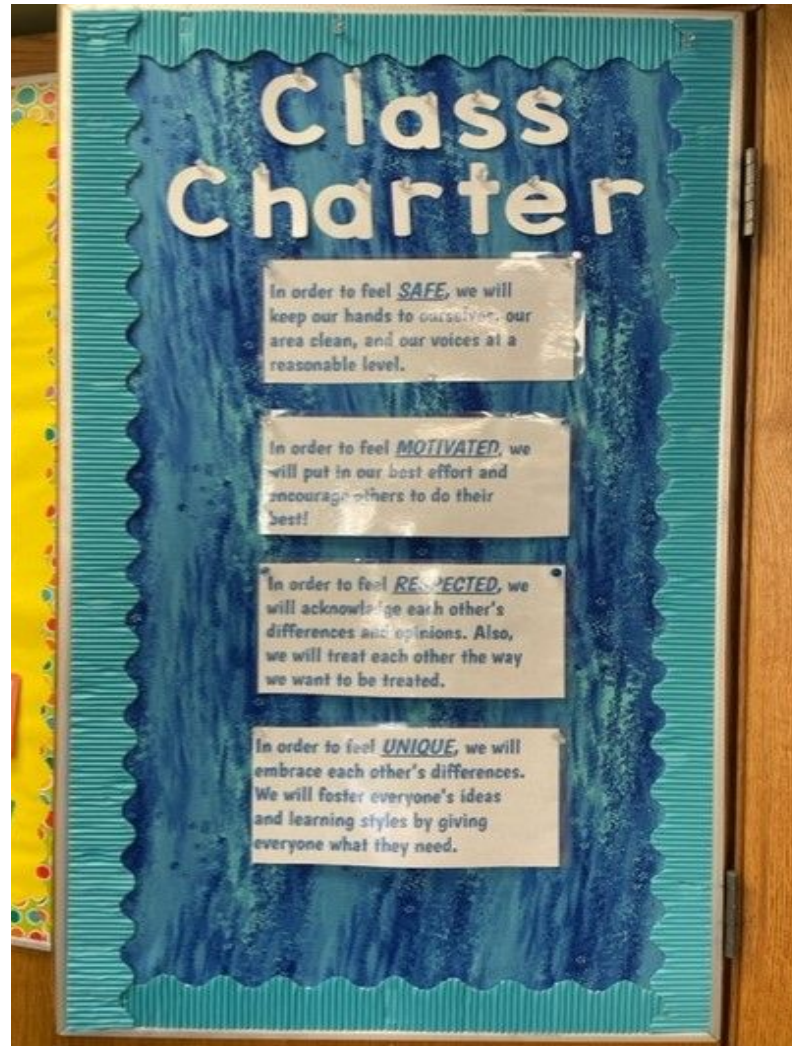 Class
Charter
In order to feel SAFE, we will
keep our hands to ourselves, our
area clean, and our voices at a
reasonable level.
In order to feel MOTIVATED, we
will put in our best effort and
encourage others to do their
best!
In order to feel RESPECTED, we
will acknowledge each other's
differences and opinions. Also,
we will treat each other the way
we want to be treated.
In order to feel UNIQUE, we will
embrace each other's differences.
We will foster everyone's ideas
and learning styles by giving
everyone what they need.